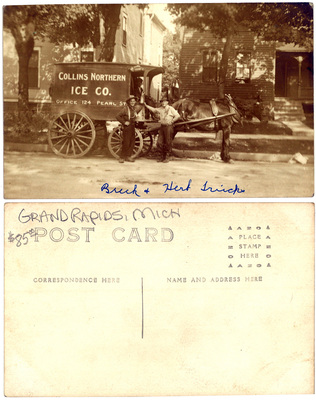 COLLINS NORTHERN
ICE CO.
OFFICE 124 PEARL ST
Buck & Herb
GRAND RAPIDS, MICH
$85
POST CARD
AZO
PLACE
STAMP
HERE
AZO
CORRESPONDENCE HERE
NAME AND ADDRESS HERE